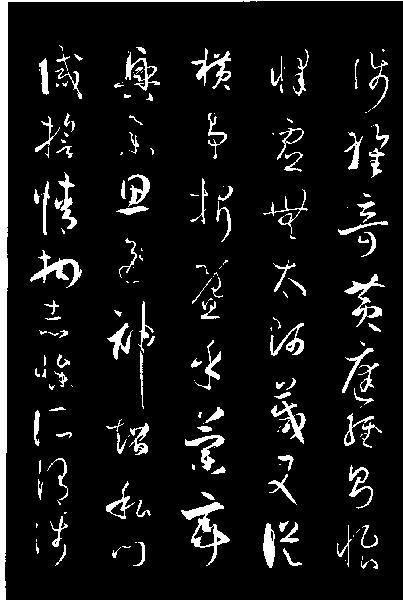 涉瓌奇黃庭經則怡
懌虛無太師箴又縱
橫爭折暨乎蘭亭
興集思逸神超私門
誡誓情拘志慘所謂涉